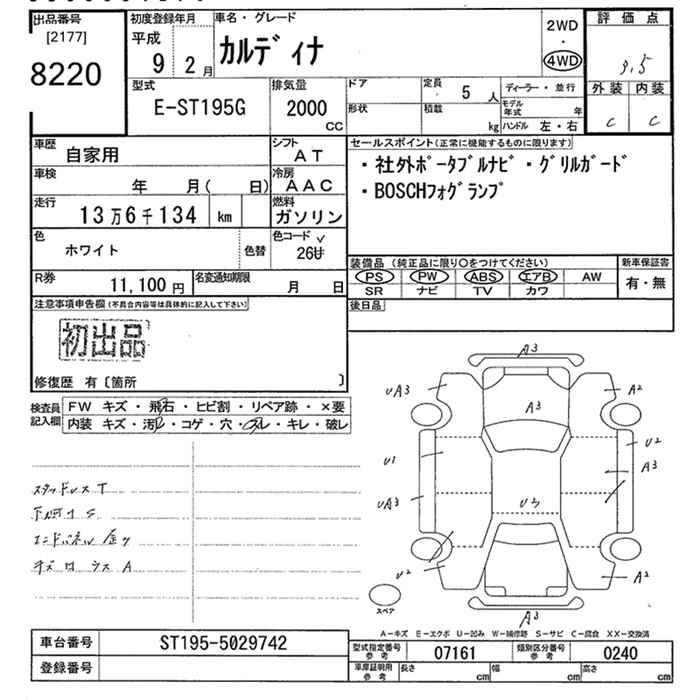 出品番号
[2177]
8220
初度登録年月
平成
9 2月
車名・グレード
カルディナ
2WD
・
4WD
評価点
3.5
外装 内装
C C
型式
E-ST195G
排気量
2000
CC
ドア
形状
定員
5 人
積載
kg
ディーラー・並行
モデル年式 年
ハンドル 左・右
車歴
自家用
シフト
AT
車検
年 月( 日)
冷房
AAC
走行
13万6千134 km
燃料
ガソリン
色
ホワイト
色替
色コード
26サ
R券
11,100円
名変通知期限
月 日
セールスポイント(正常に機能するものに限ります)
・社外ポータブルナビ・グリルガード
・BOSCHフォグランプ
装備品 (純正品に限り○をつけてください)
PS PW ABS エアB AW
SR ナビ TV カワ
新車保証書
有・無
後日品
注意事項申告欄(不具合内容等は具体的に記入して下さい)
初出品
修復歴 有〔箇所 〕
検査員記入欄
FW キズ・飛石・ヒビ割・リペア跡・×要
内装 キズ・汚・コゲ・穴・スレ・キレ・破レ
スタッドレスT
A3
UA3 A2
A3
U1 U2
A3
UA3 U3
U2 A2
A3
スペア
A-キズ E-エクボ U-凹み W-補修跡 S-サビ C-腐食 XX-交換済
車台番号
ST195-5029742
登録番号
型式指定番号
参考
07161
類別区分番号
参考
0240
車庫証明用
参考
長さ cm
幅 cm
高さ cm